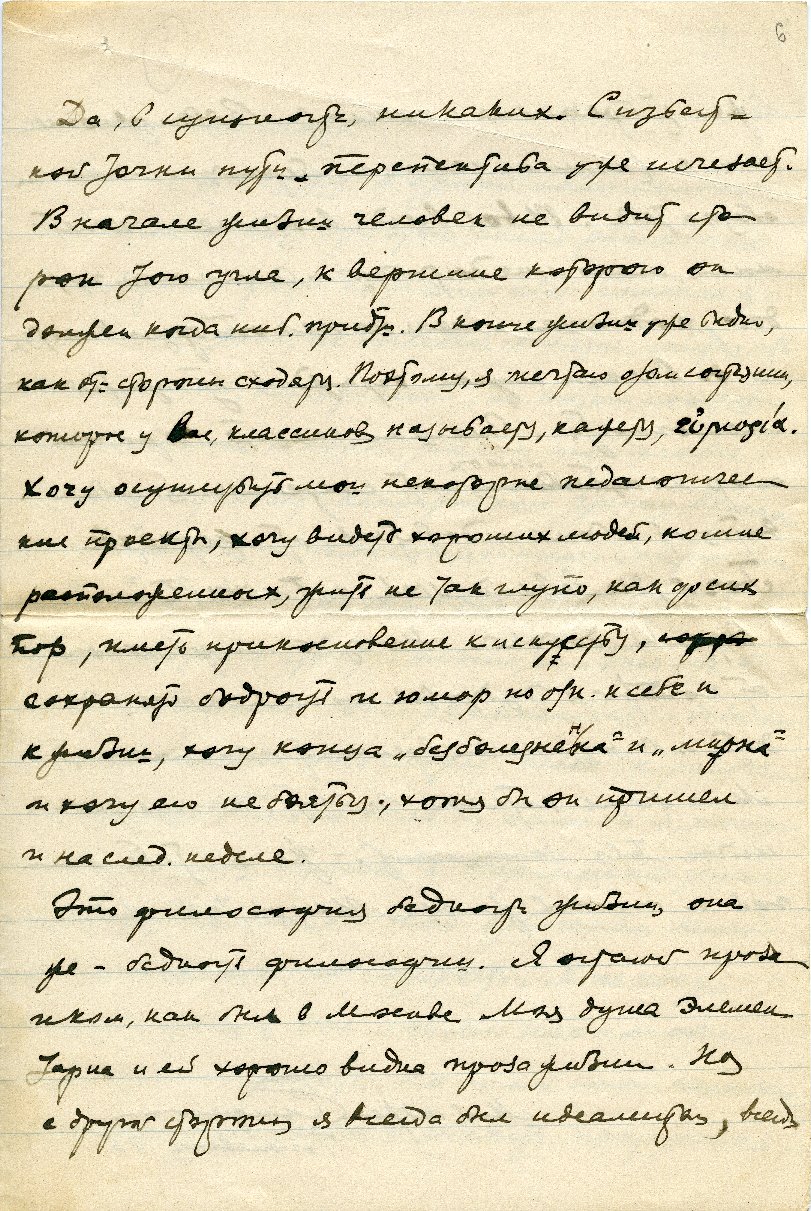 6
Да, в сущности, никаких. С извест-
ной точки пути - перспектива уже исчезает.
В начале жизни человек не видит сто
рон того угла, к вершине которого он
должен когда ниб. придти. В конце жизни уже видно,
как эти стороны сходятся. Поэтому, я мечтаю о том состоянии,
которое у вас, классиков называется, кажется,
Хочу осуществить мои некоторые педагогичес
кие проекты, хочу видеть хороших людей, ко мне
расположенных, жить не так глупо, как до сих
пор, иметь прикосновение к искусству,
сохранять бодрость и юмор по отн. к себе и
к жизни, хочу конца „безболезненна" и „мирна"
и хочу его не бояться, хотя бы он пришел
и на след. неделе.
Это философия бедности жизни, она
же - бедность философии. Я остаюсь проза
иком, как был в Москве Моя душа элемен
тарна и ей хорошо видна проза жизни. Но
с другой стороны я всегда был идеалистом, всегда